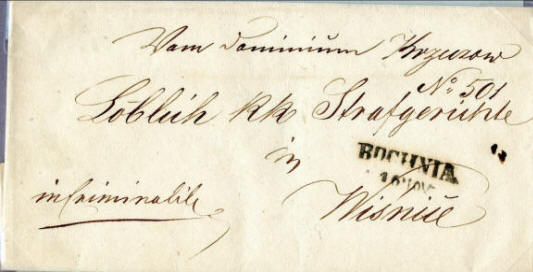 Vom Dominium Krzyzow
No 501
Löblich kk Strafgerichte
in
BOCHNIA
16 NOV
Wisnicz
in Criminalibs